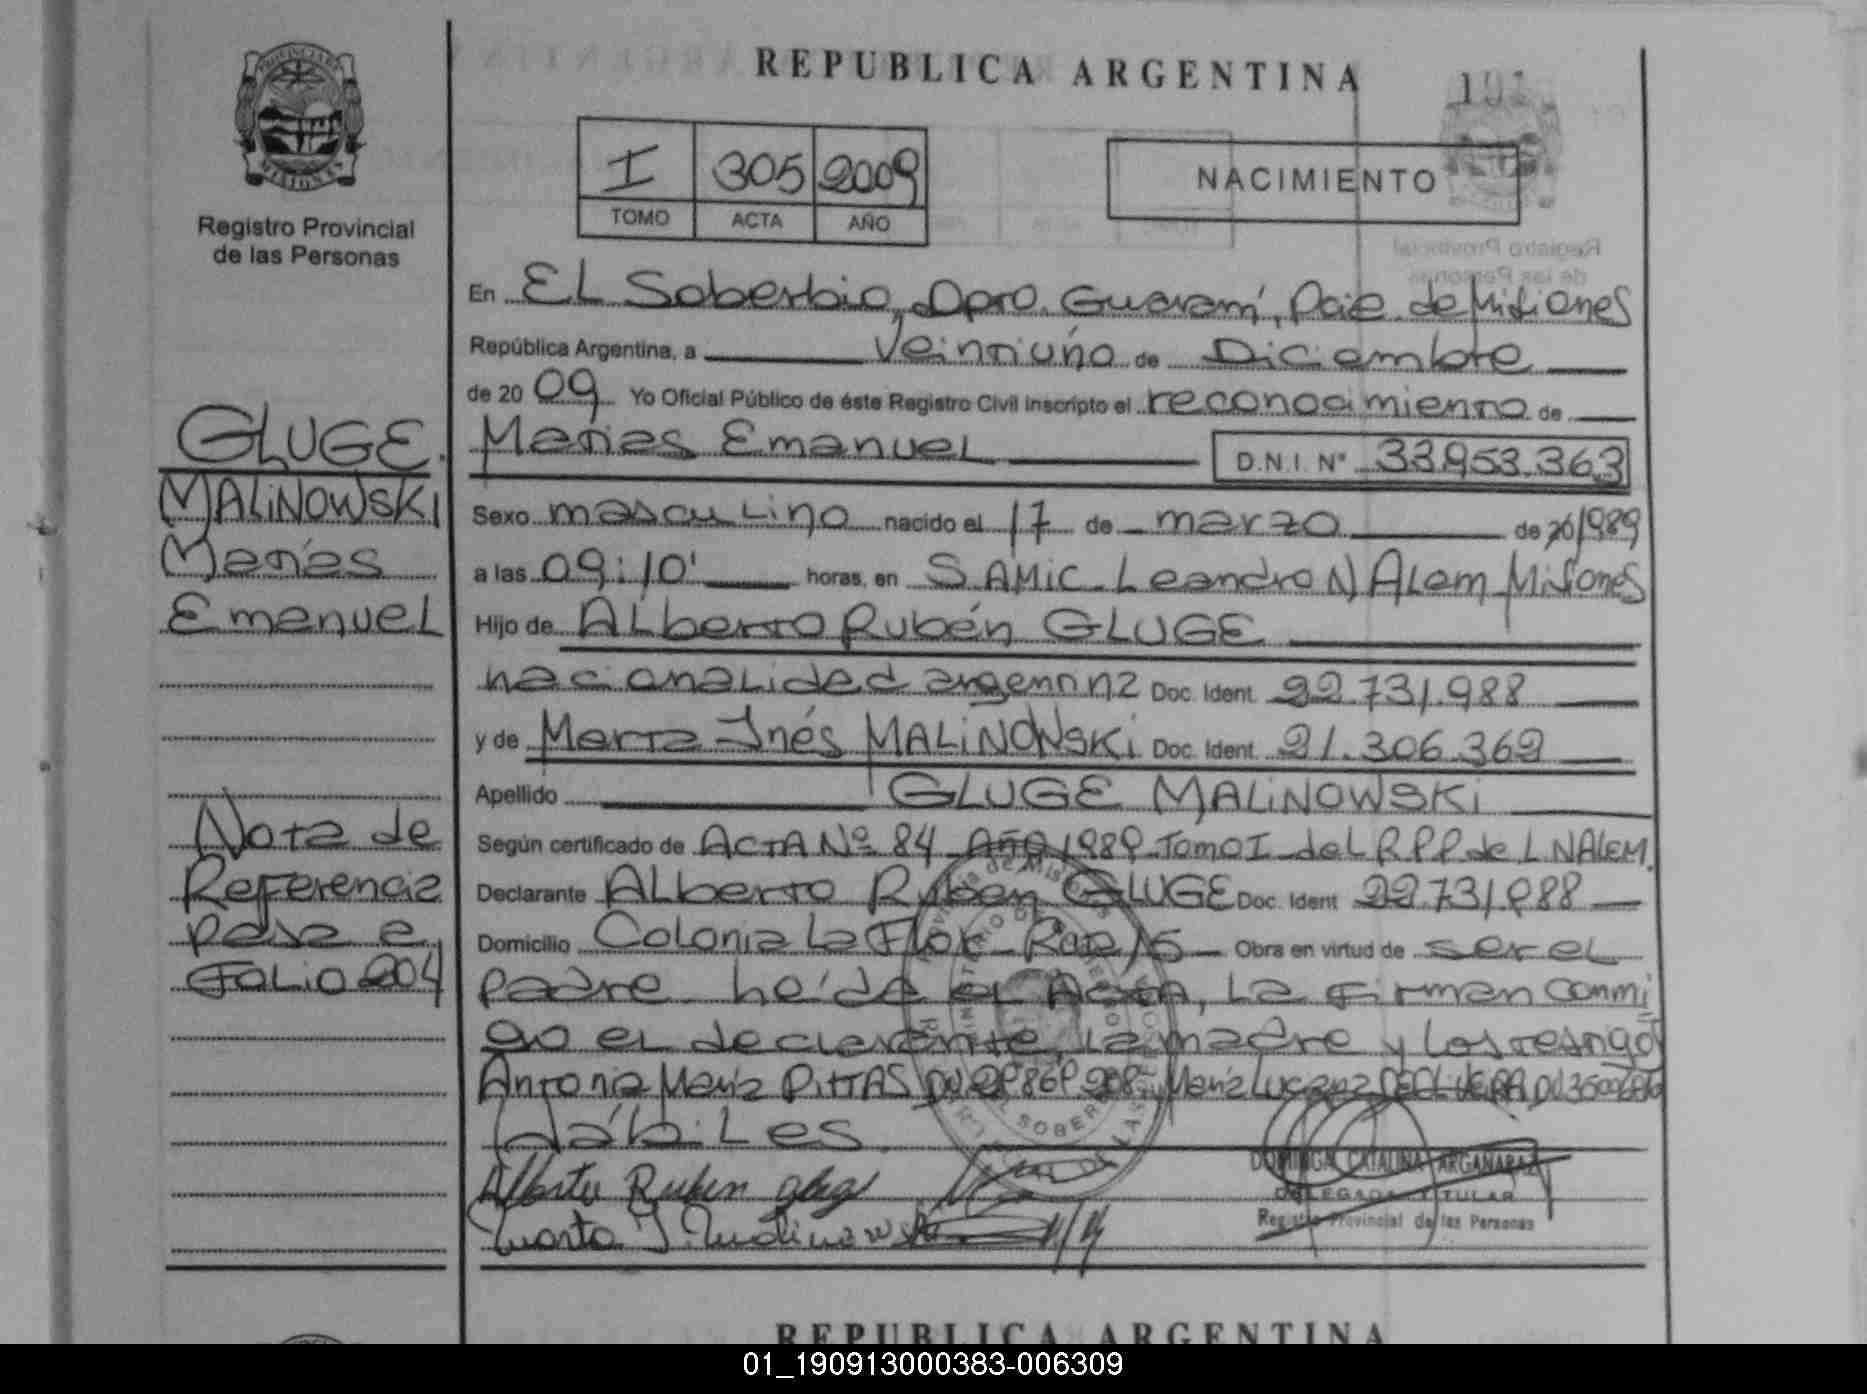 REPUBLICA ARGENTINA
PROVINCIA DE
MISIONES
Registro Provincial
de las Personas
I 305 2009
TOMO ACTA AÑO
NACIMIENTO
En EL Soberbio, Dpto. Guaraní, Pcia. de Misiones
República Argentina, a Veintiuno de Diciembre
de 2009 Yo Oficial Público de éste Registro Civil inscripto el reconocimiento de
Matías Emanuel D.N.I. N° 33.953.363
Sexo masculino nacido el 17 de marzo de 20/1989
a las 09:10' horas, en SAMIC Leandro N Alem Misiones
Hijo de Alberto Rubén GLUGE
nacionalidad argentina Doc. Ident. 22.731.988
y de Marta Inés MALINOWSKI Doc. Ident. 21.306.369
Apellido GLUGE MALINOWSKI
Según certificado de ACTA Nº 84 Año 1989 Tomo I del R.P.P. de L N ALEM.
Declarante Alberto Ruben GLUGE Doc. Ident 22.731.988
Domicilio Colonia La Flor Obra en virtud de ser el
padre leída el Acta, la firman conmi
go el declarante, la madre y los testigos
Antonia María PITTAS DNI María
Hábiles
Alberto Ruben gluge
Marta I. Malinowski
DOMINGA CATALINA ARGAÑARAZ
DELEGADA TITULAR
Registro Provincial de las Personas
GLUGE
MALINOWSKI
Matías
Emanuel
Nota de
Referencia
pasa a
FOLIO 204
REPUBLICA ARGENTINA
01_190913000383-006309